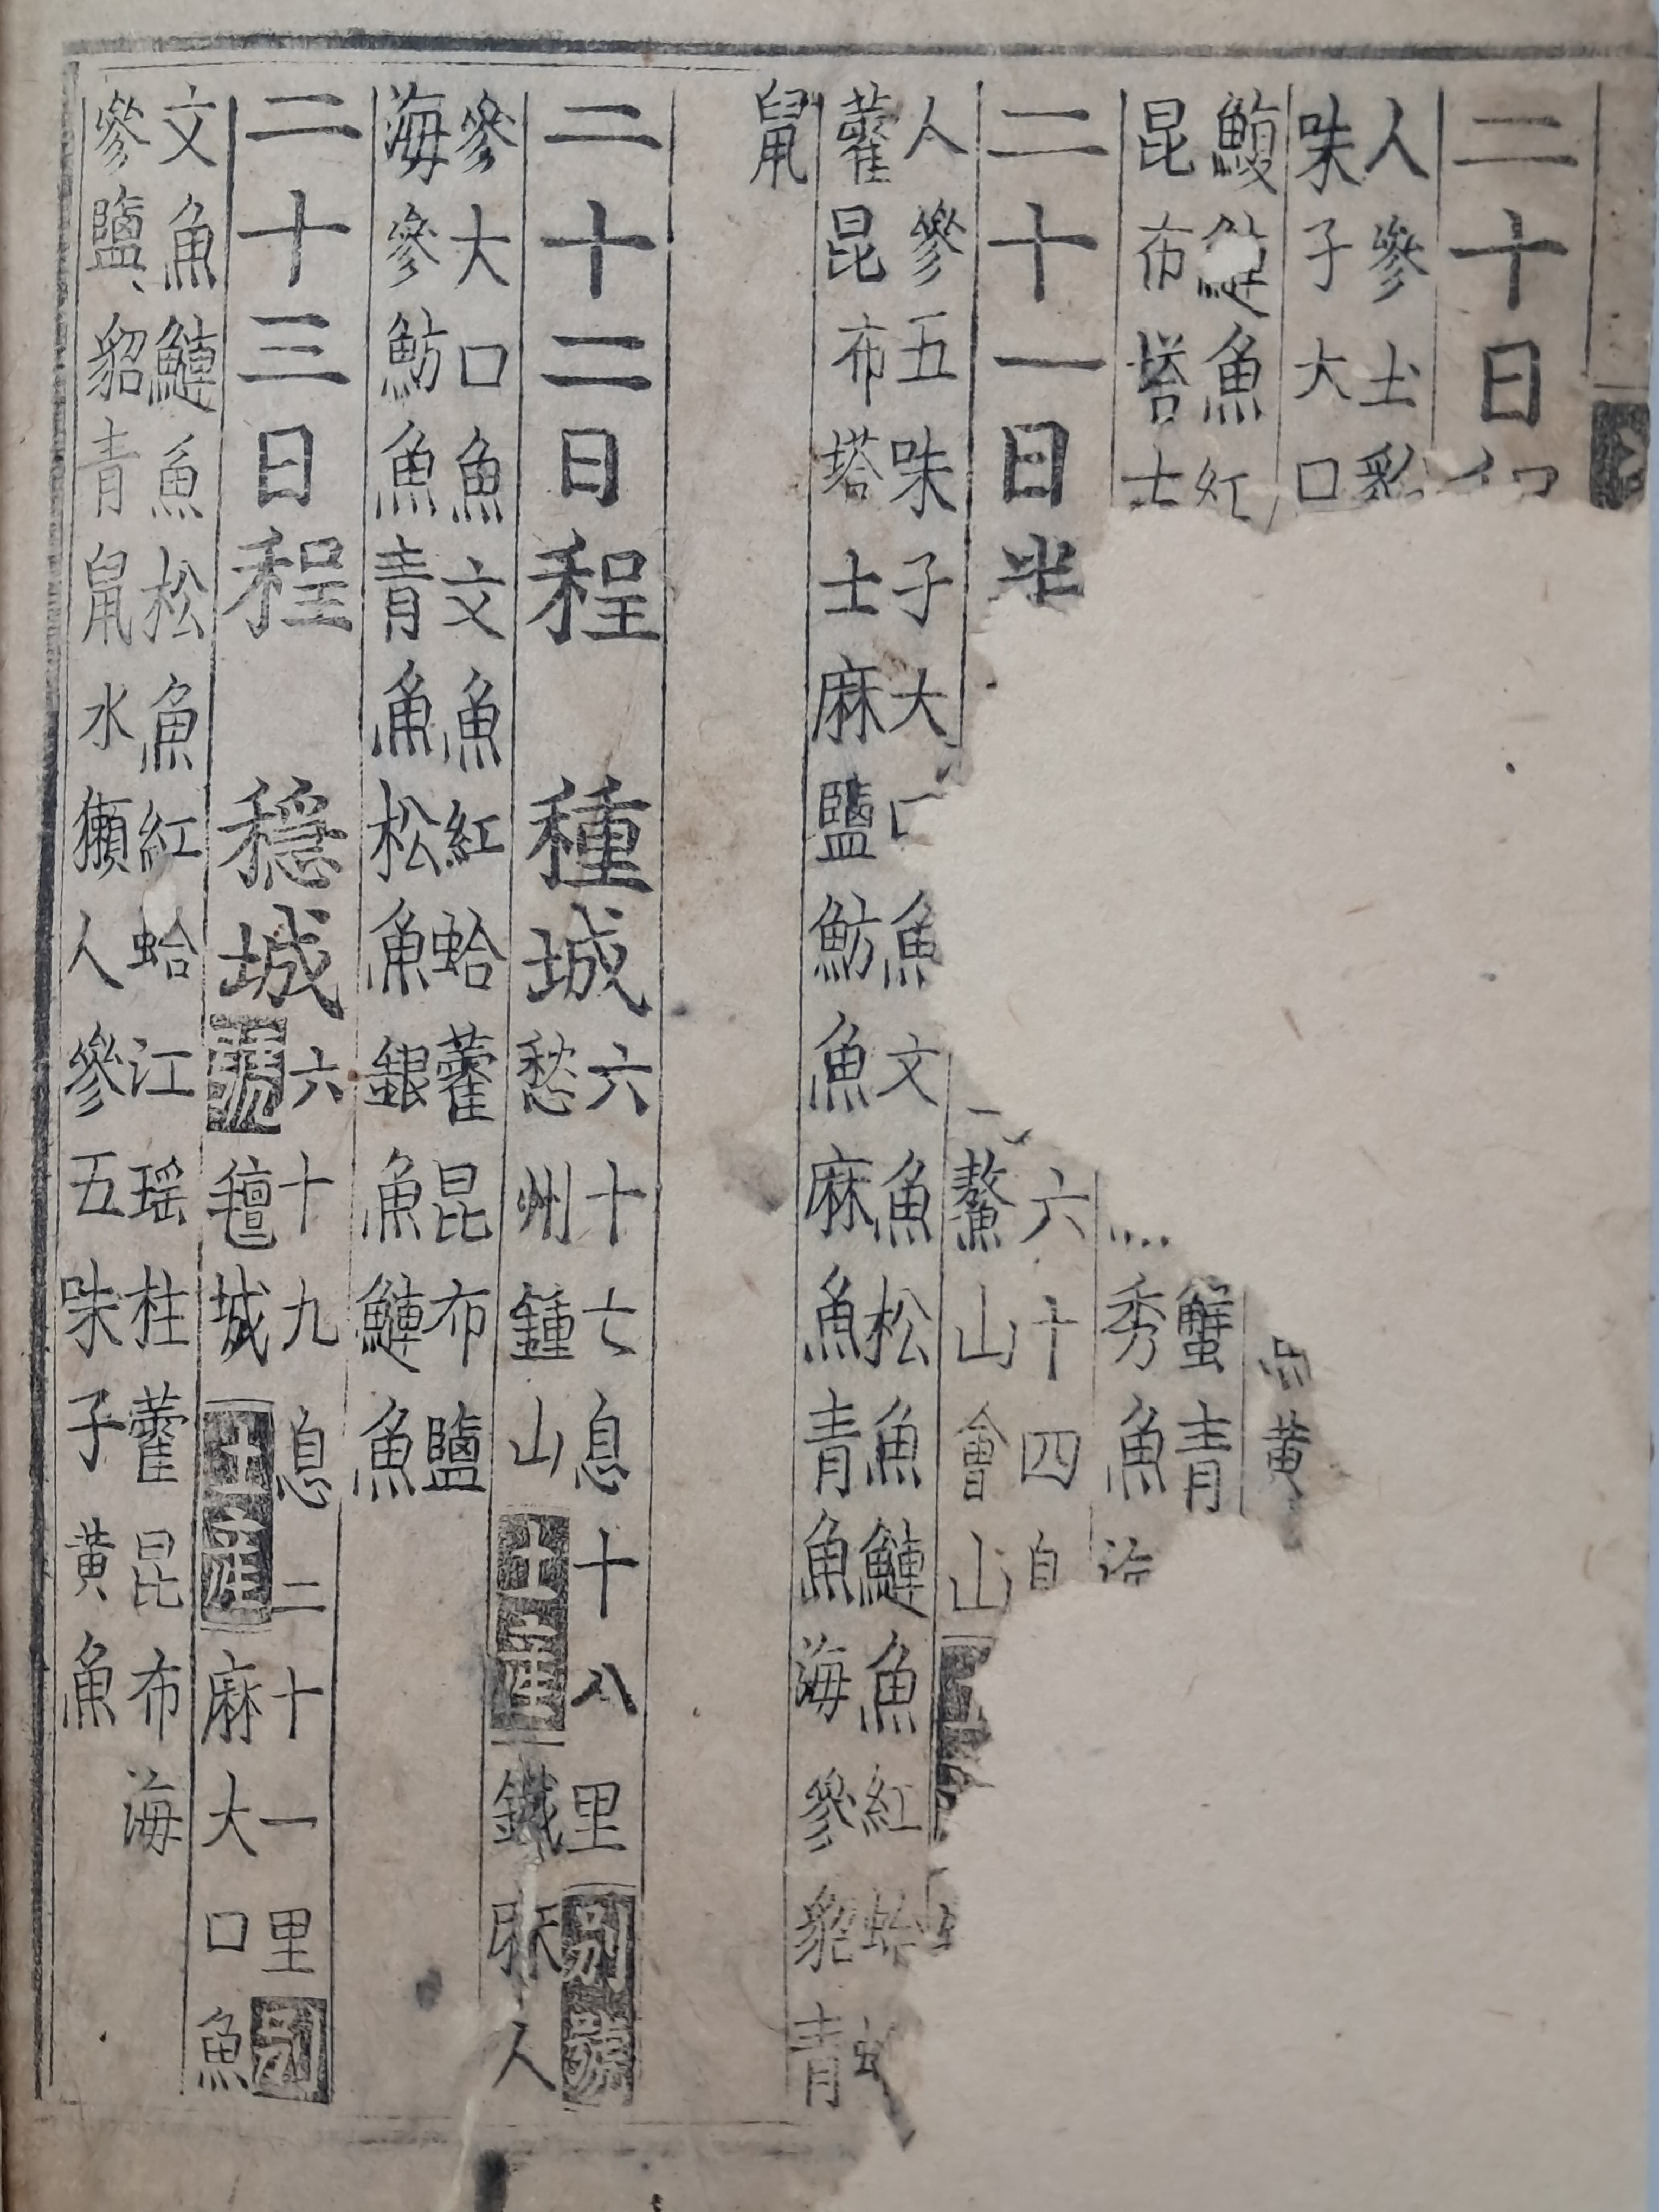 二十日
人參土黄
味子大口
鰒鰱魚紅蟹青
昆布塔士秀魚
二十一日
六十四
鰲山會山
人參五味子大魚文魚松魚鰱魚紅蛤
藿昆布塔士麻鹽魴魚麻魚青魚海參貂青
鼠
二十二日程 種城
六十七息十八里別號
愁州鍾山土產鐵麻人
參大口魚文魚紅蛤藿昆布鹽
海參魴魚青魚松魚銀魚鰱魚
二十三日程 穩城
六十九息二十一里別
號氊城土產麻大口魚
文魚鰱魚松魚紅蛤江瑶柱藿昆布海
參鹽貂青鼠水獺人參五味子黄魚